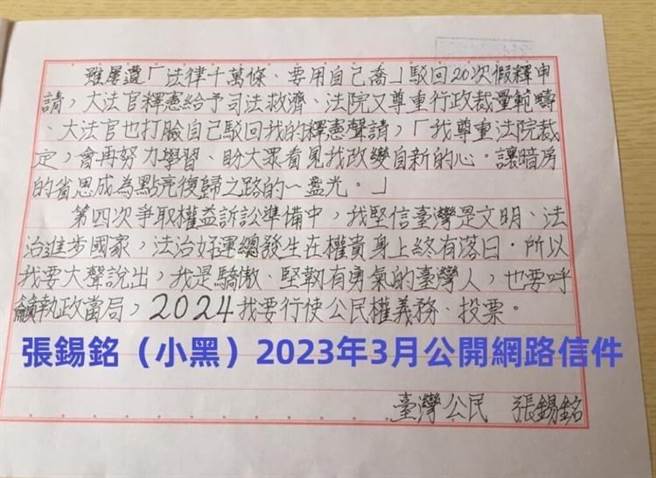 雖屢遭「法律十萬條、要用自己喬」駁回20次假釋申
請，大法官釋憲給予司法救濟、法院又尊重行政裁量範疇
、大法官也打臉自己駁回我的釋憲聲請，「我尊重法院裁
定，會再努力學習、盼大眾看見我改變自新的心，讓暗房
的省思成為點亮復歸之路的一盞光。」
第四次爭取權益訴訟準備中，我堅信臺灣是文明、法
治進步國家，法治好運總發生在權貴身上終有落日，所以
我要大聲說出，我是驕傲、堅韌有勇氣的臺灣人，也要呼
籲執政當局，2024我要行使公民權義務、投票。
張錫銘（小黑）2023年3月公開網路信件
臺灣公民 張錫銘